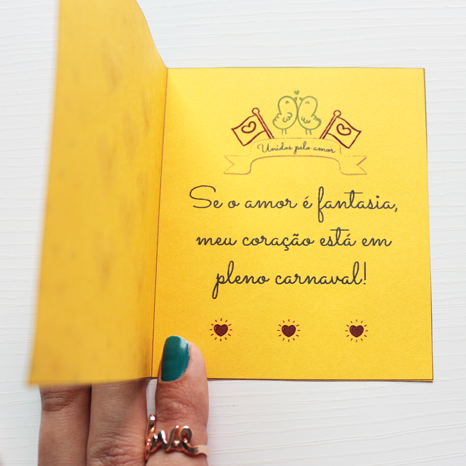 Unidos pelo amor!
Se o amor é fantasia,
meu coração está em
pleno carnaval!
love